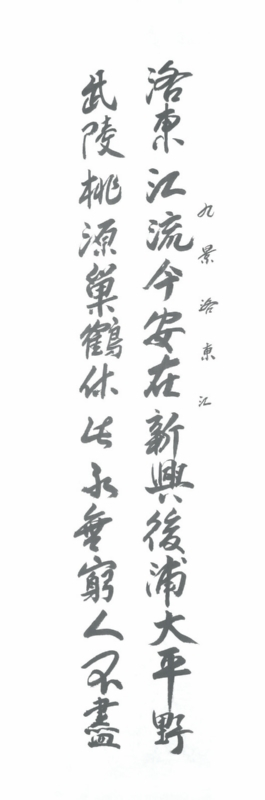 九景洛東江
洛東江流今安在新興後浦大平野
武陵桃源巢鶴休此永無窮人不盡